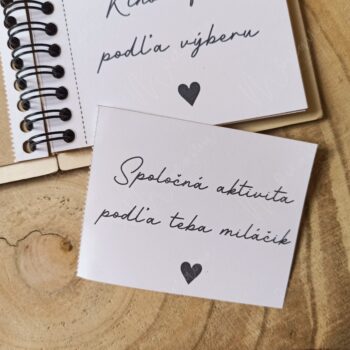 podľa výberu
Spoločná aktivita
podľa teba miláčik